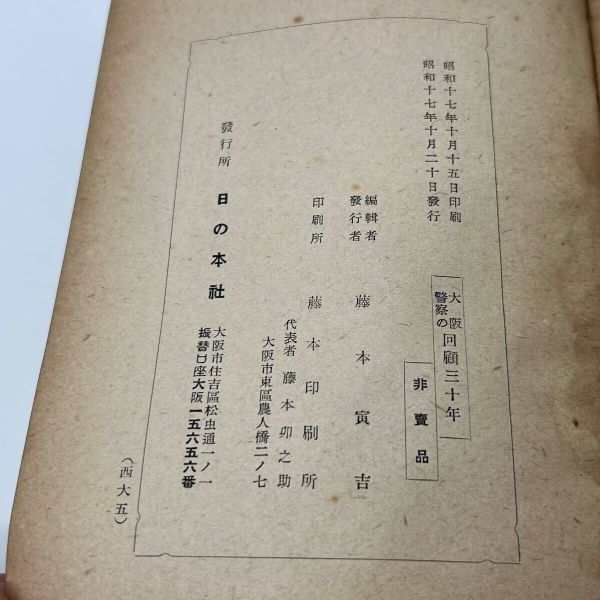 昭和十七年十月十五日印刷
昭和十七年十月二十日發行
大阪
警察の
回顧三十年
非賣品
編輯者
發行者
藤本寅吉
印刷所
藤本印刷所
代表者 藤本卯之助
大阪市東區農人橋二ノ七
發行所
日の本社
大阪市住吉區松虫通一ノ一
振替口座大阪一五六五六番
(西大五)